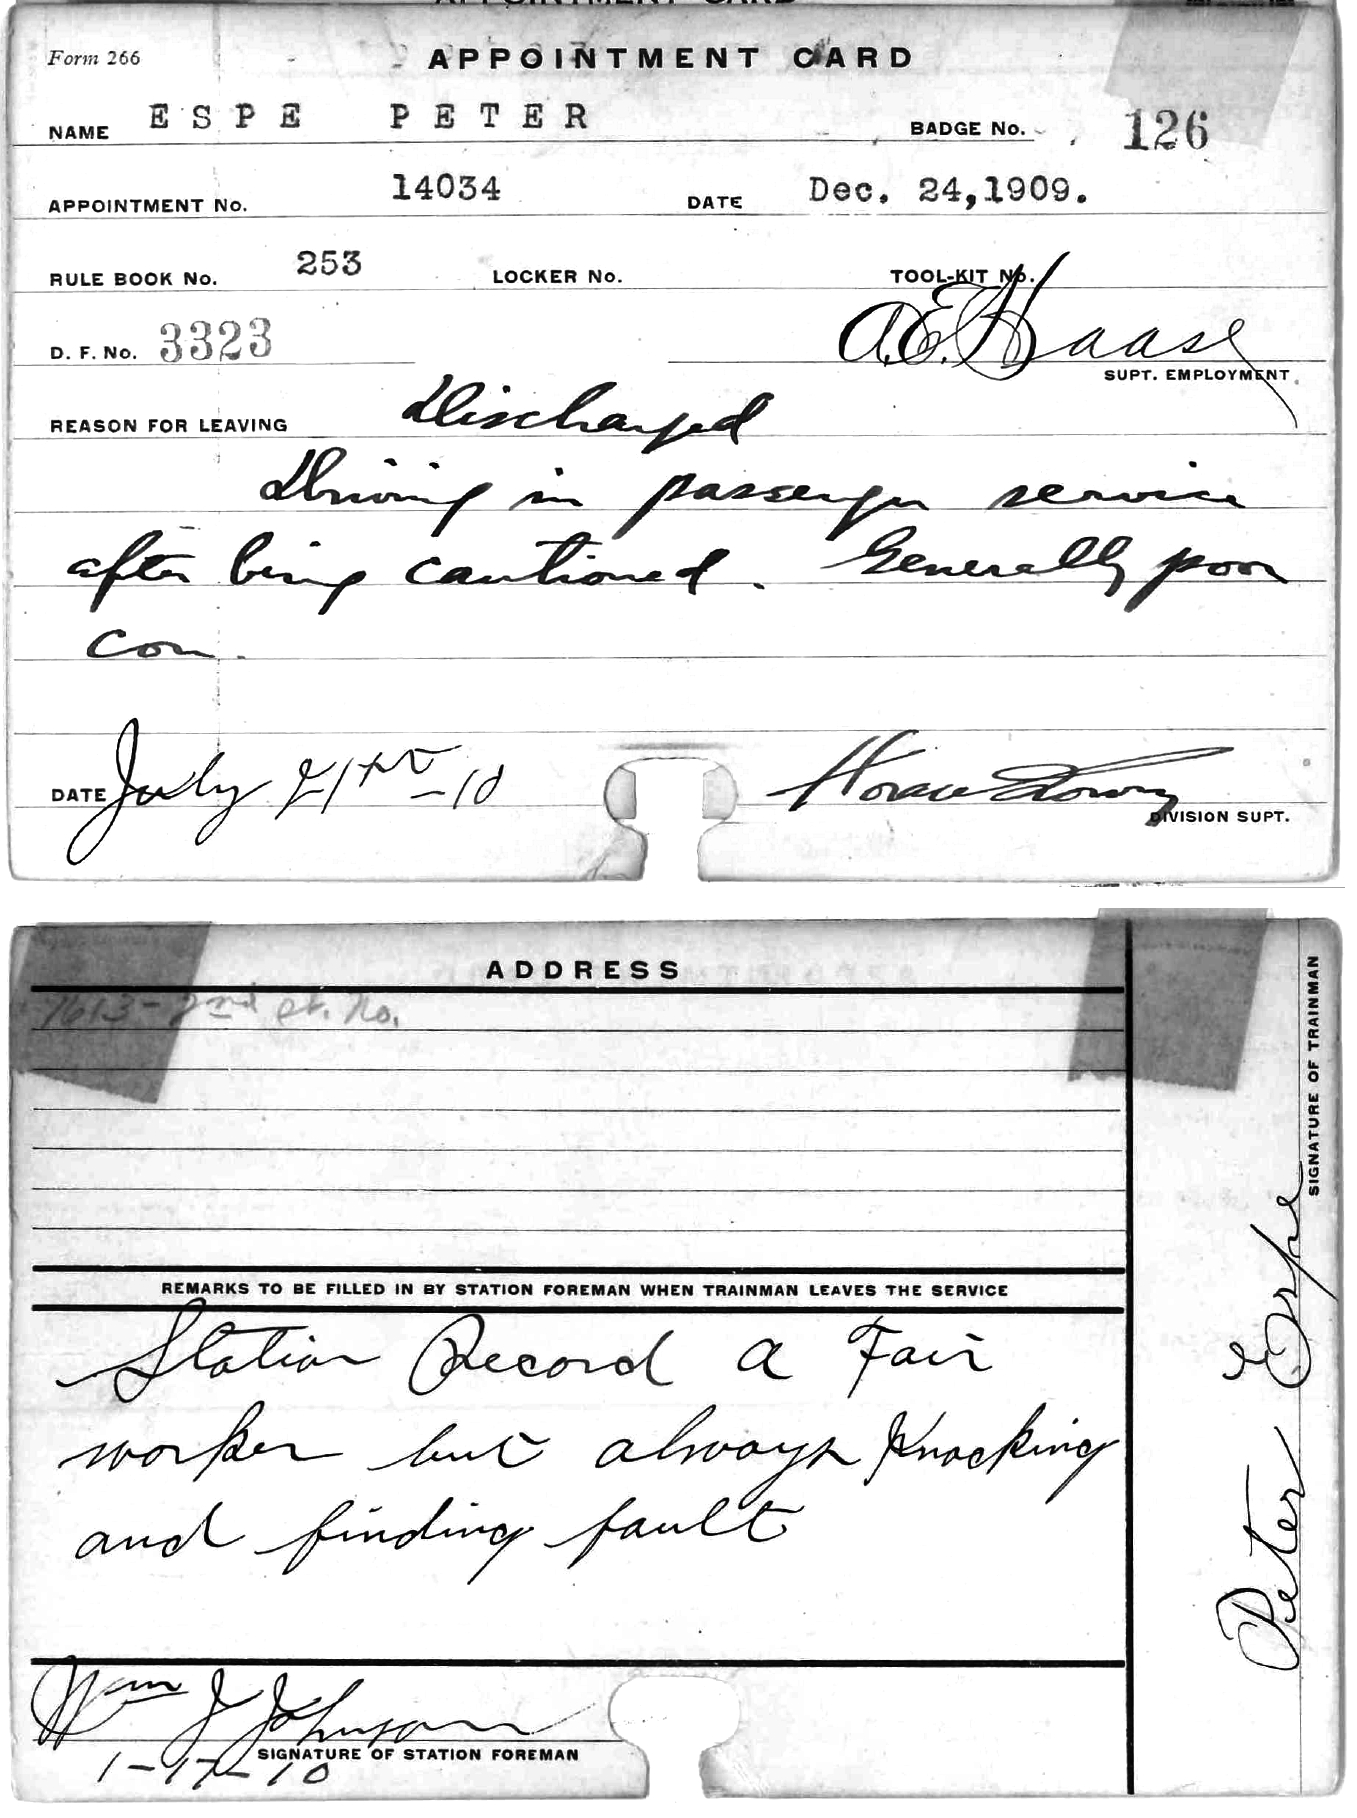 Form 266
APPOINTMENT CARD
NAME ESPE PETER BADGE No. 126
APPOINTMENT No. 14034 DATE Dec. 24,1909.
RULE BOOK No. 253 LOCKER No. TOOL-KIT No.
D. F. No. 3323 A.E. Haase
SUPT. EMPLOYMENT
REASON FOR LEAVING Discharged
in passenger service
after being cautioned. Generally poor
con.
DATE July 21st - 10 Horace Lowry
DIVISION SUPT.
ADDRESS
1613 - 2nd St. No.
REMARKS TO BE FILLED IN BY STATION FOREMAN WHEN TRAINMAN LEAVES THE SERVICE
Station Record a Fair
worker but always Knocking
and finding fault
Wm J Johnson
SIGNATURE OF STATION FOREMAN
1-17-10
SIGNATURE OF TRAINMAN
Peter Espe